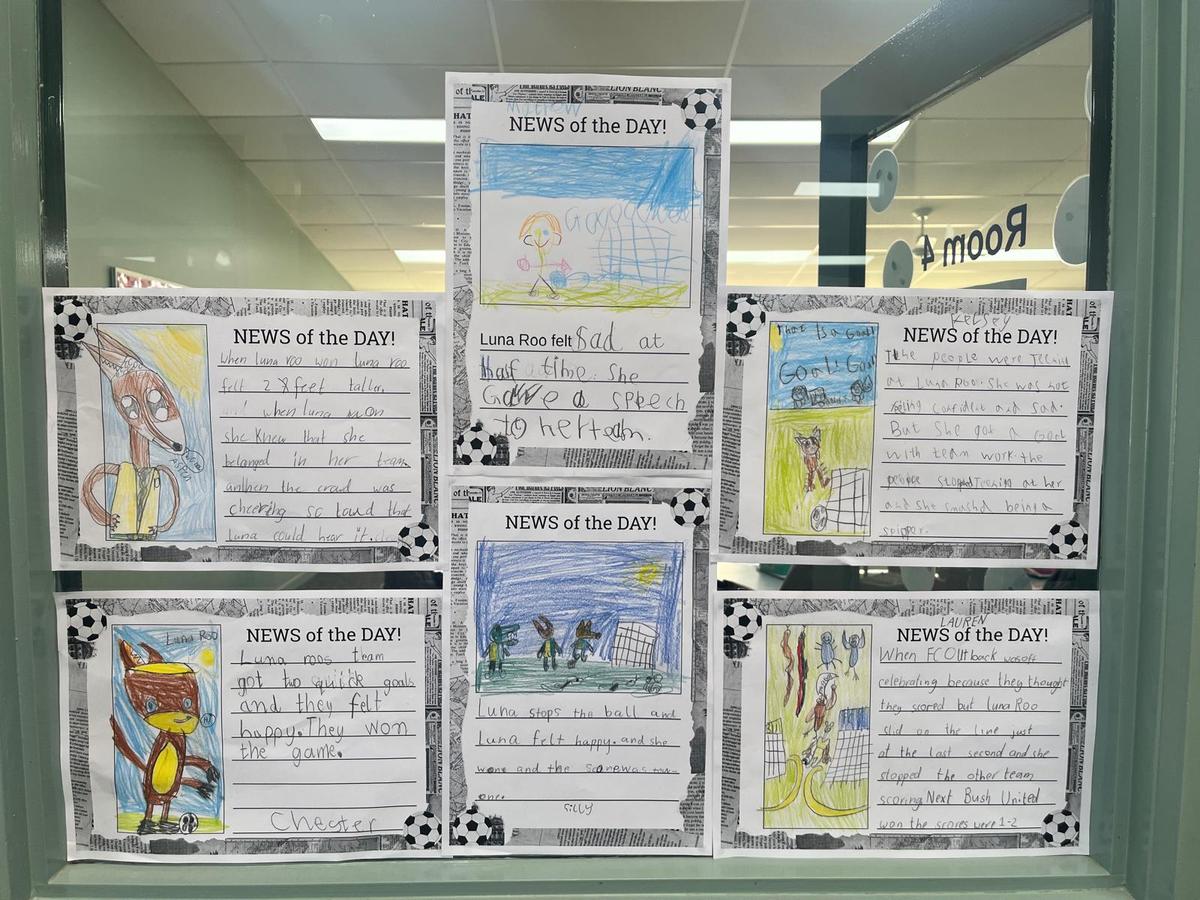 MILLOW
NEWS of the DAY!
GOOOOOOAL
Luna Roo felt Sad at
Half a time. She
Gave a speech
TO her team.
Room 4
NEWS of the DAY!
When luna roo won luna roo
felt 28 feet taller
when luna won
she knew that she
belanged in her team
anthen the crawd was
cheering so laud that
Luna could hear it.
KELSEY
NEWS of the DAY!
That Is a Goal!
Goal! Goal!
The people were Teasing
at Luna Roo. She was not
feling confident and sad.
But she got a Goal
with team work. the
people stopped Teasing at her
and she smashd being a
skipper.
NEWS of the DAY!
Luna stops the ball and
Luna felt happy. and she
wone and the score was
one.
SILLY
Luna Roo
NEWS of the DAY!
Luna roos team
got two quick goals
and they felt
happy. They won
the game.
Chester
LAUREN
NEWS of the DAY!
When FC Outback was off
celebrating because they thought
they scored but luna Roo
slid on the line just
at the last second and she
stopped the other team
scoring. Next Bush United
won the scores were 1-2